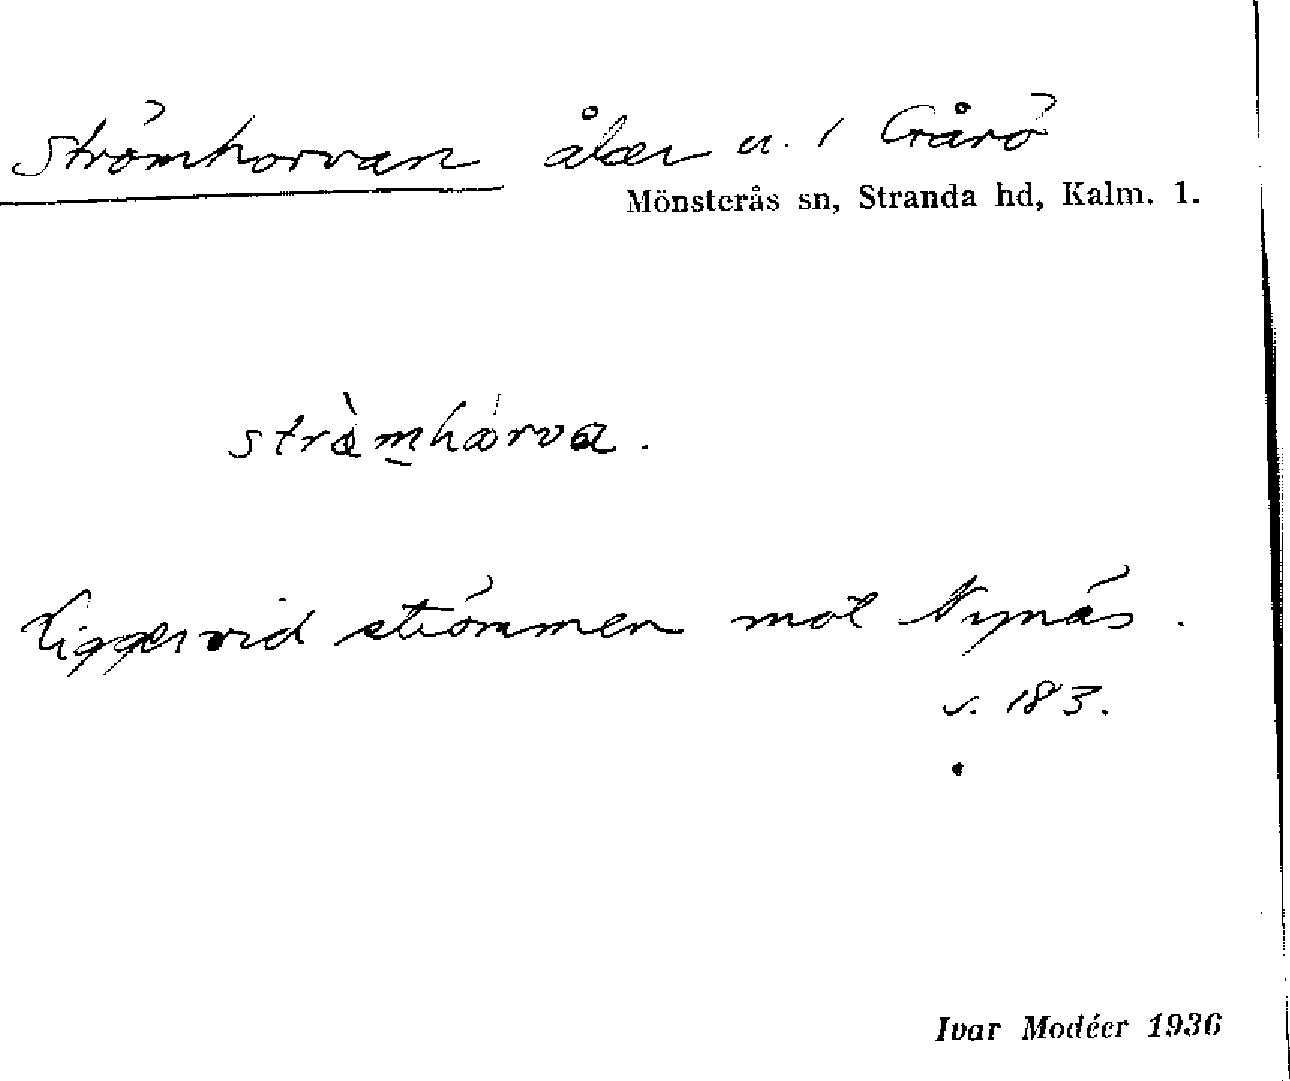 Strömhorvan åker u. / Gårö
Mönsterås sn, Stranda hd, Kalm. l.
strömhorva.
Ligger vid strömmen mot Nynäs.
s. 183.
Ivar Modéer 1936